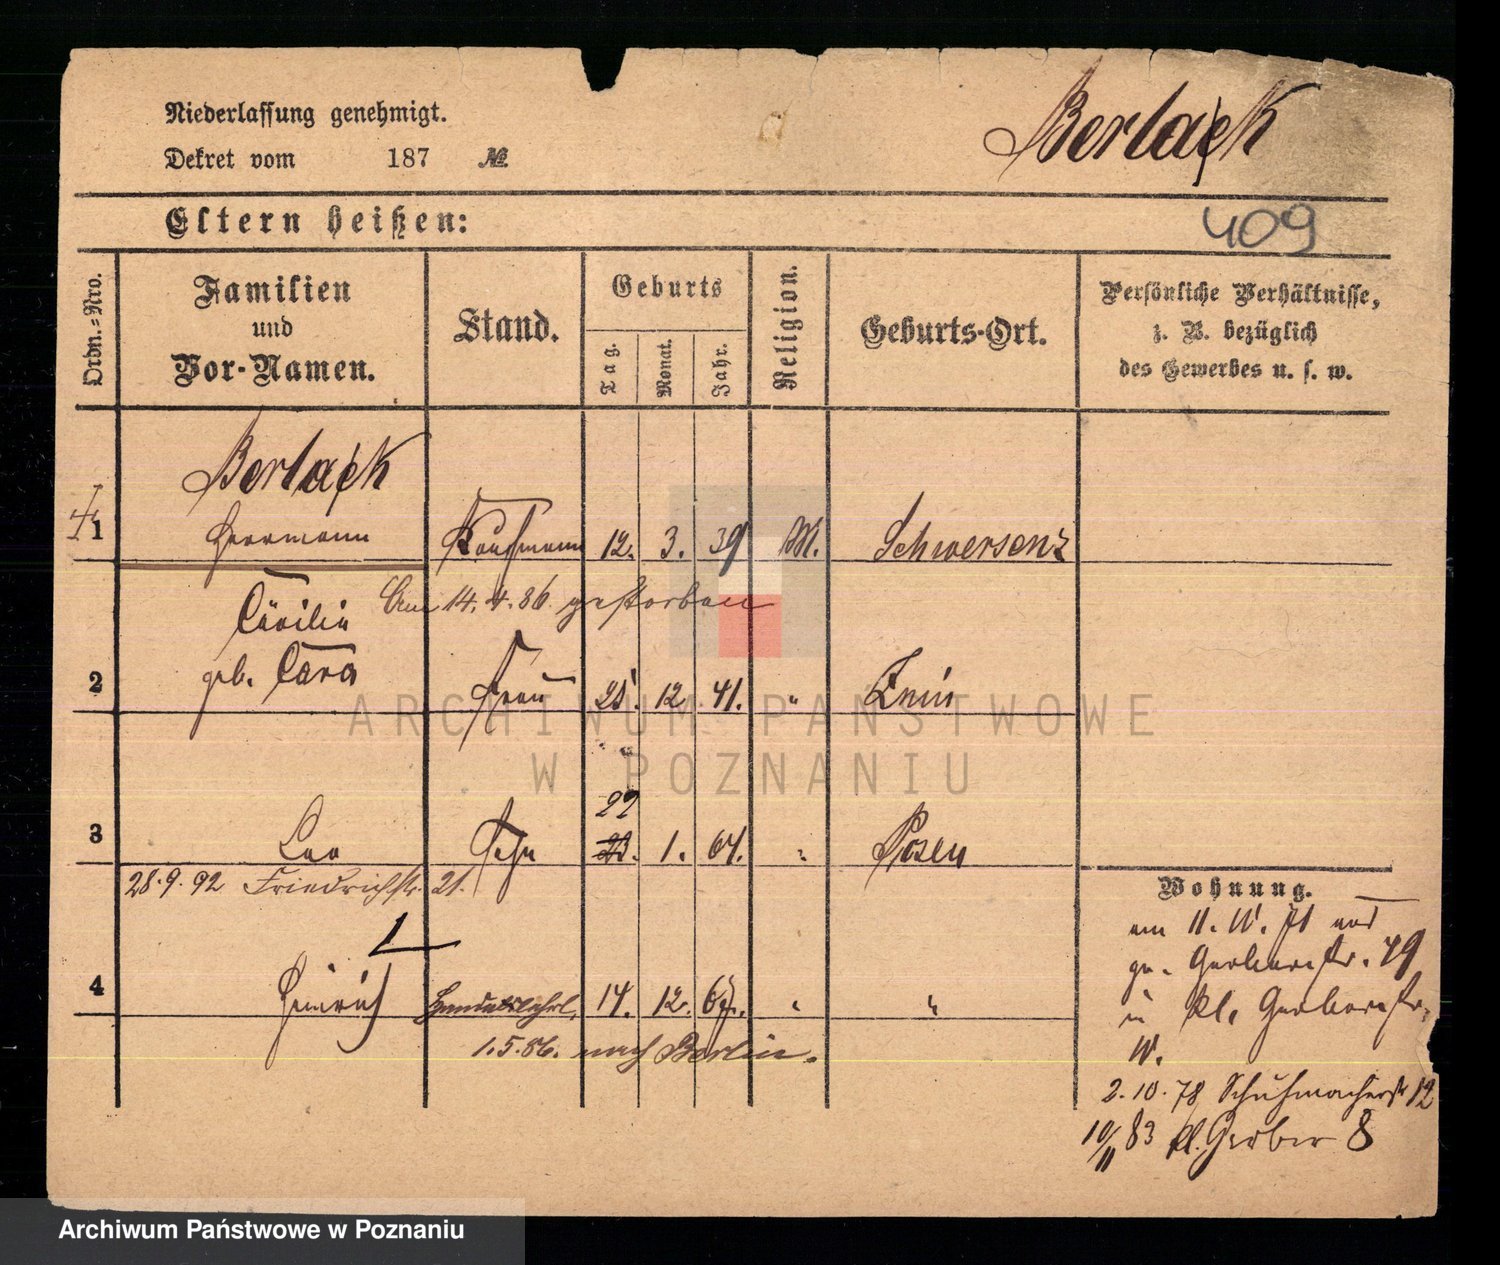 Niederlassung genehmigt.
Dekret vom 187 №
Berlack
Eltern heißen:
409
Ordn.=Nro.
Familien
und
Vor-Namen.
Stand.
Geburts
Tag.
Monat.
Jahr.
Religion.
Geburts-Ort.
Persönliche Verhältnisse,
z. B. bezüglich
des Gewerbes u. s. w.
Berlack
1 Herrmann Kaufmann 12. 3. 39 M. Schwersenz
Am 14. 4. 86. gestorben
Cäcilie
2 geb. Caro Frau 12 41. "
22
3 Leo Sohn 23. 1. 64. " Posen
28.9.92 Friedrichstr. 21.
4 Heinrich Handelslehrl. 14. 12. " "
1.5.86. nach Berlin.
Wohnung.
am 11.
Gerberstr.
u kl. Gerberstr.
2.10.78 Schuhmacherstr 12
10/11 83 kl. Gerber 8
ARCHIWUM PAŃSTWOWE
W POZNANIU
Archiwum Państwowe w Poznaniu